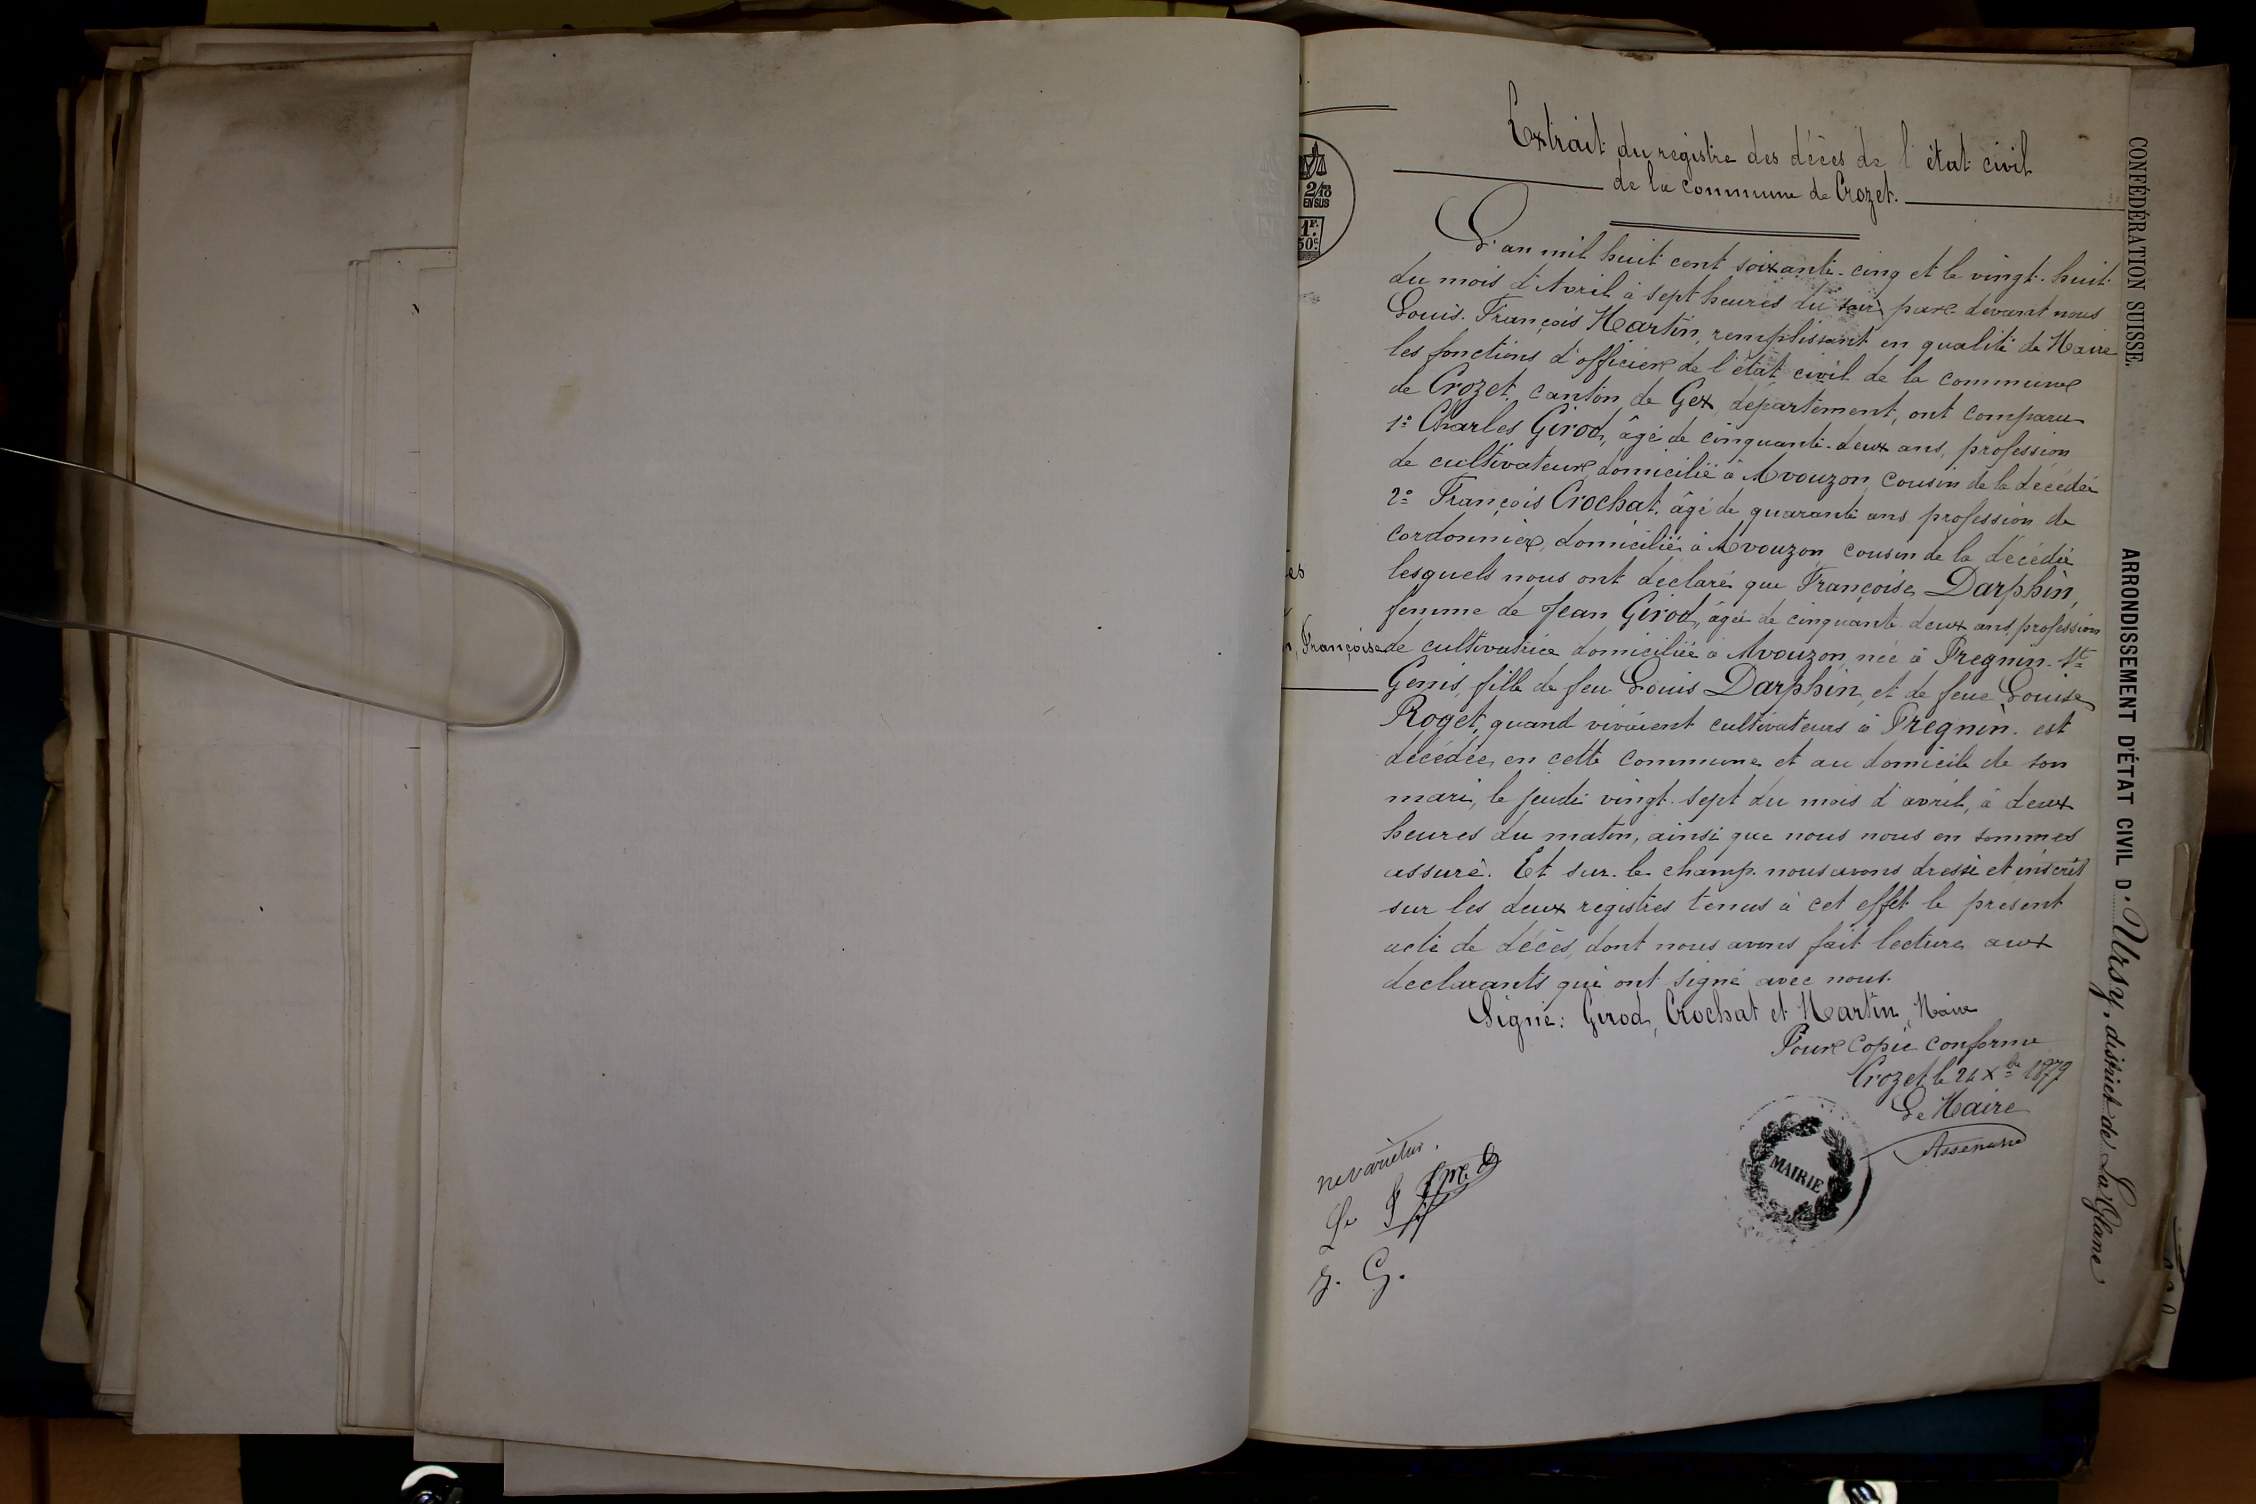 Extrait du registre des décès de l'état civil
de la commune de Crozet.
L'an mil huit cent soixante-cinq et le vingt-huit
du mois d'Avril à sept heures du soir, par devant nous
Louis-François Martin, remplissant en qualité de Maire
les fonctions d'officier de l'état civil de la commune
de Crozet, canton de Gex, département, ont comparu
1º Charles Girod, âgé de cinquante-deux ans, profession
de cultivateur, domicilié à Avouzon, cousin de la décédée
2º François Crochat, âgé de quarante ans profession de
cordonnier, domicilié à Avouzon cousin de la décédée
lesquels nous ont déclaré que Françoise Darphin,
femme de Jean Girod, âgée de cinquante deux ans, profession
de cultivatrice domiciliée à Avouzon, née à Pregnin-St
Genis, fille de feu Louis Darphin, et de feue Louise
Roget, quand vivaient cultivateurs à Pregnin. est
décédée, en cette commune et au domicile de son
mari, le jeudi vingt-sept du mois d'avril, à deux
heures du matin, ainsi que nous nous en sommes
assuré. Et sur-le-champ nous avons dressé et inscrit
sur les deux registres tenus à cet effet le présent
acte de décès, dont nous avons fait lecture aux
declarants qui ont signé avec nous.
Signé: Girod, Crochat et Martin, Maire
Pour copie conforme
Crozet le 24 Xbre 1879
Le Maire
MAIRIE
ne varietur.
Le
J. G.
2/10
EN SUS
1F.
50c
es
, Françoise
CONFÉDÉRATION SUISSE.
ARRONDISSEMENT D'ÉTAT CIVIL D'Ursy, district de La Glane